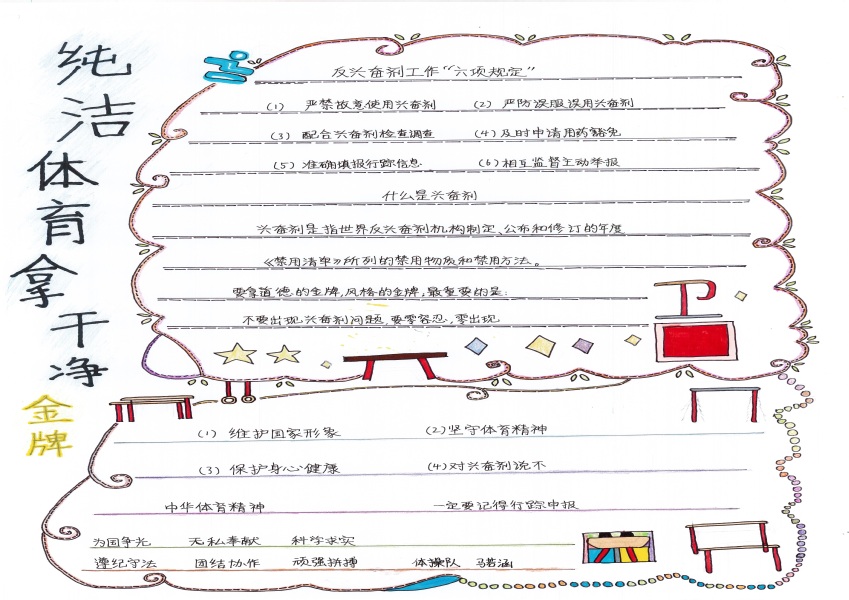 纯洁体育拿干净
金牌
反兴奋剂工作“六项规定”
(1) 严禁故意使用兴奋剂 (2) 严防误服误用兴奋剂
(3) 配合兴奋剂检查调查 (4)及时申请用药豁免
(5) 准确填报行踪信息 (6)相互监督主动举报
什么是兴奋剂
兴奋剂是指世界反兴奋剂机构制定、公布和修订的年度
《禁用清单》所列的禁用物质和禁用方法。
要拿道德的金牌,风格的金牌,最重要的是:
不要出现兴奋剂问题,要零容忍,零出现
(1) 维护国家形象 (2)坚守体育精神
(3) 保护身心健康 (4)对兴奋剂说不
中华体育精神 一定要记得行踪申报
为国争光 无私奉献 科学求实
遵纪守法 团结协作 顽强拼搏 体操队 马若涵